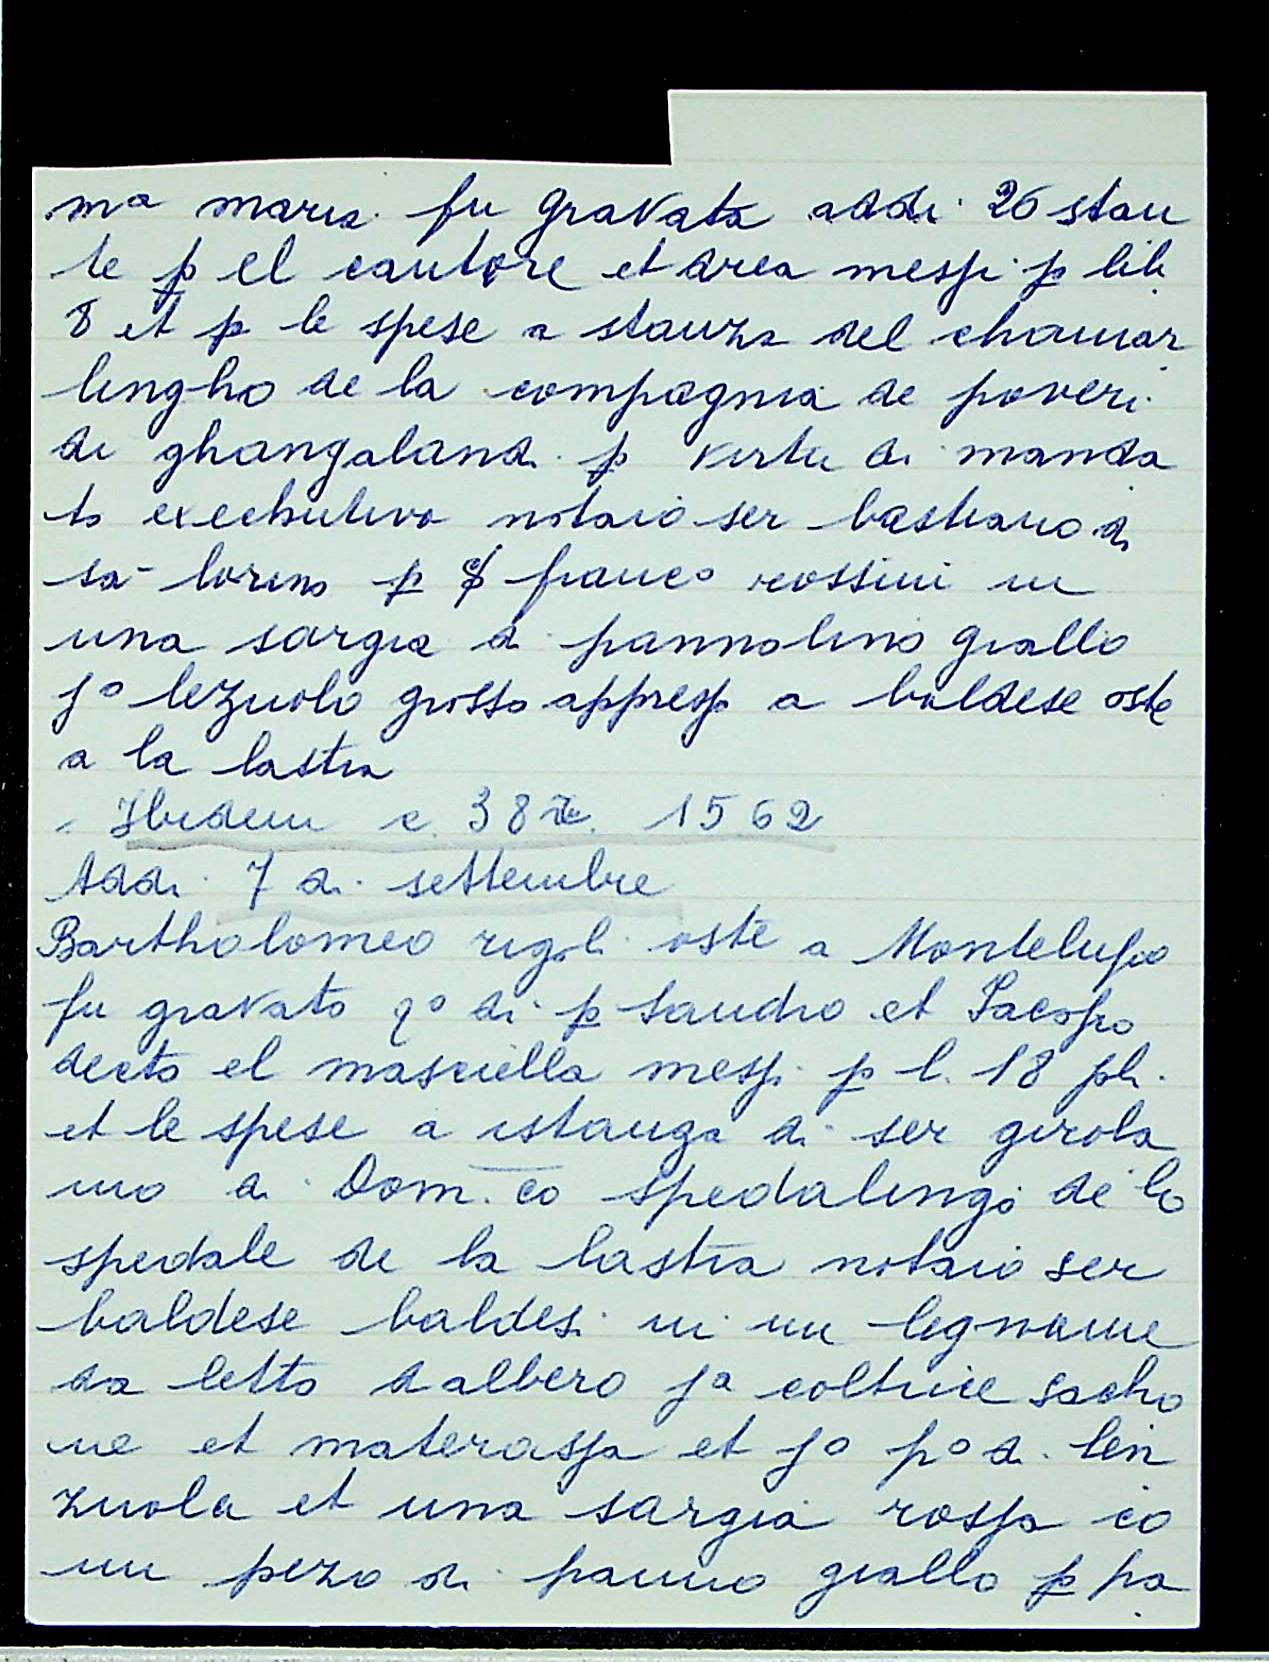 mᵃ maria fu gravata addi 26 stan
te p el cantore et drea messi p lib.
8 et p le spese a stanza del chamar
lingho de la compagnia de poveri
di ghangalandi p virtu di manda
to exechutivo notaio ser bastiano di
sā lorino p franco rossini in
una sargia di pannolino giallo
jº lezuolo grosso appresso a baldese oste
a la lastra
Ibidem c. 38 1562
Addi 7 di settembre
Bartholomeo rigoli oste a Montelupo
fu gravato qº di p Sandro et Jacopo
decto el masciella messi p l. 18 pli.
et le spese a istanza di ser girola
mo di Dom.co spedalingo de lo
spedale de la lastra notaio ser
baldese baldesi in un legname
da letto dalbero jª coltrice sacho
ne et materassa et jº pº di lin
zuola et una sargia rossa cō
un pezo di panno giallo p pa